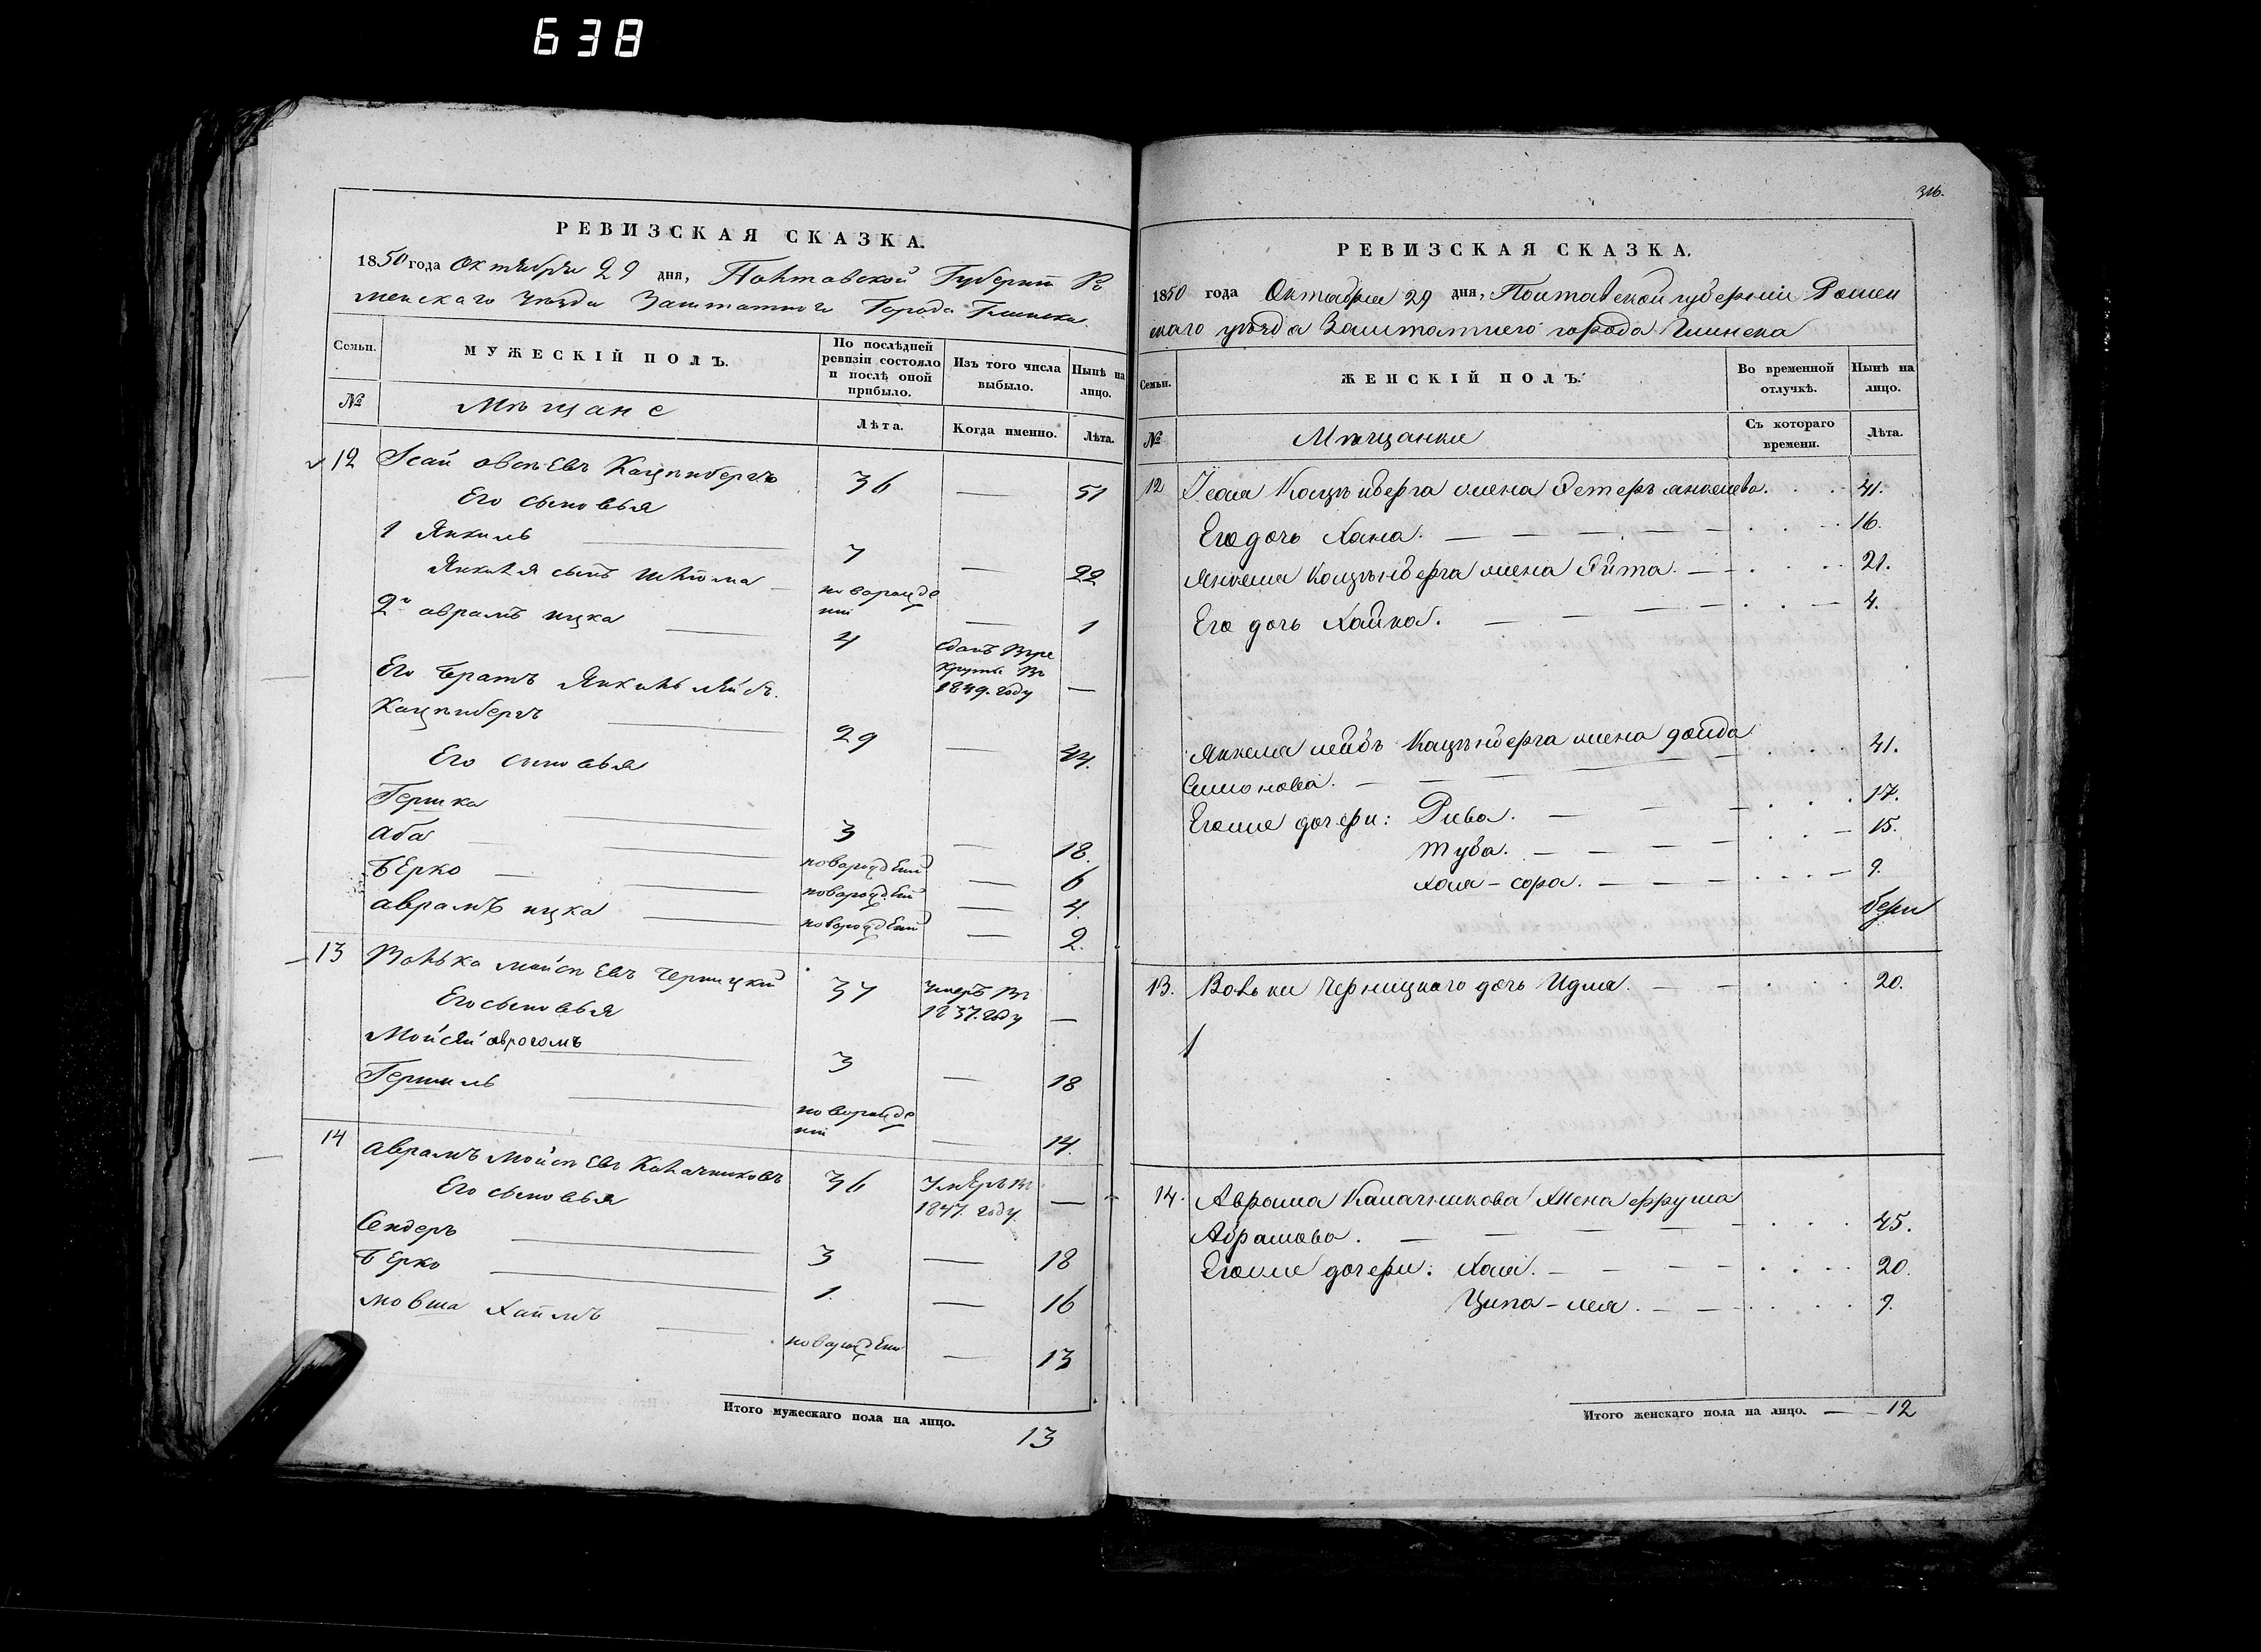 638
РЕВИЗСКАЯ СКАЗКА.
1850 года Октября 29 дня, Полтавской Губерніи Ро
менскаго уезда Заштатнаго Города Глинска.
Семьи.
МУЖЕСКІЙ ПОЛЪ.
По послѣдней ревизіи состояло и послѣ оной прибыло.
Изъ того числа выбыло.
Нынѣ на лицо.
№
Мѣщане
Лѣта.
Когда именно.
Лѣта.
12 Исай Овсѣевъ Кацънбергъ 36 — 51
Его сыновья
1 Янкиль 7 — 22
Янкиля сынъ Шлiома — новорожде
ній — 1
2й аврамъ ицка 4 Сданъ Врe
круты Въ
1849. году —
Его братъ Янкиль лейбъ
Кацънбергъ 29 — 44.
Его сыновья
Гершка 3 — 18.
аба — новорожденій — 6
бЕрко — новорожденій — 4.
аврамъ ицка новорожденій — 2.
13 Волька мойсѣЕвъ Черницкій 37 Умеръ Въ
1837. году —
Его сыновья
Мойсей аврогамъ 3 — 18
Гершиль новорожде
ній — 14.
14 аврамъ мойсѣЕвъ Калачниковъ 36 УмЕръ Въ
1847. году. —
Его сыновья
Сендеръ 3 — 18
бЕрко 1. — 16
мовша Хаимъ новорожденій — 13
Итого мужескаго пола на лицо.
13
316.
РЕВИЗСКАЯ СКАЗКА.
1850 года Октября 29 дня, Полтавской губерніи Ромен
скаго уѣзда Заштатнего города Глинска
Семьи.
ЖЕНСКІЙ ПОЛЪ.
Во временной отлучкѣ.
Нынѣ на лицо.
№
Мѣщанки
Съ котораго времени.
Лѣта.
12 Исая Кацънберга жена Эстеръ янкелева. 41.
Его дочь Хана. 16.
Янкеля Кацънберга жена Эйта. 21.
Его дочь Хайка. 4.
Янкеля лейбъ Кацънберга жена двейда 41.
Симонова.
Егожие дочери: Рива. 17.
Туба. 15.
хая-сора. 9.
13. Вольки Черницкого дочь Идля. 20.
14. Аврама Калачникова Жена фрума
Абрамова. 45.
Егожие дочери: Хая. 20.
Ципа-лея. 9.
Итого женскаго пола на лицо. — 12